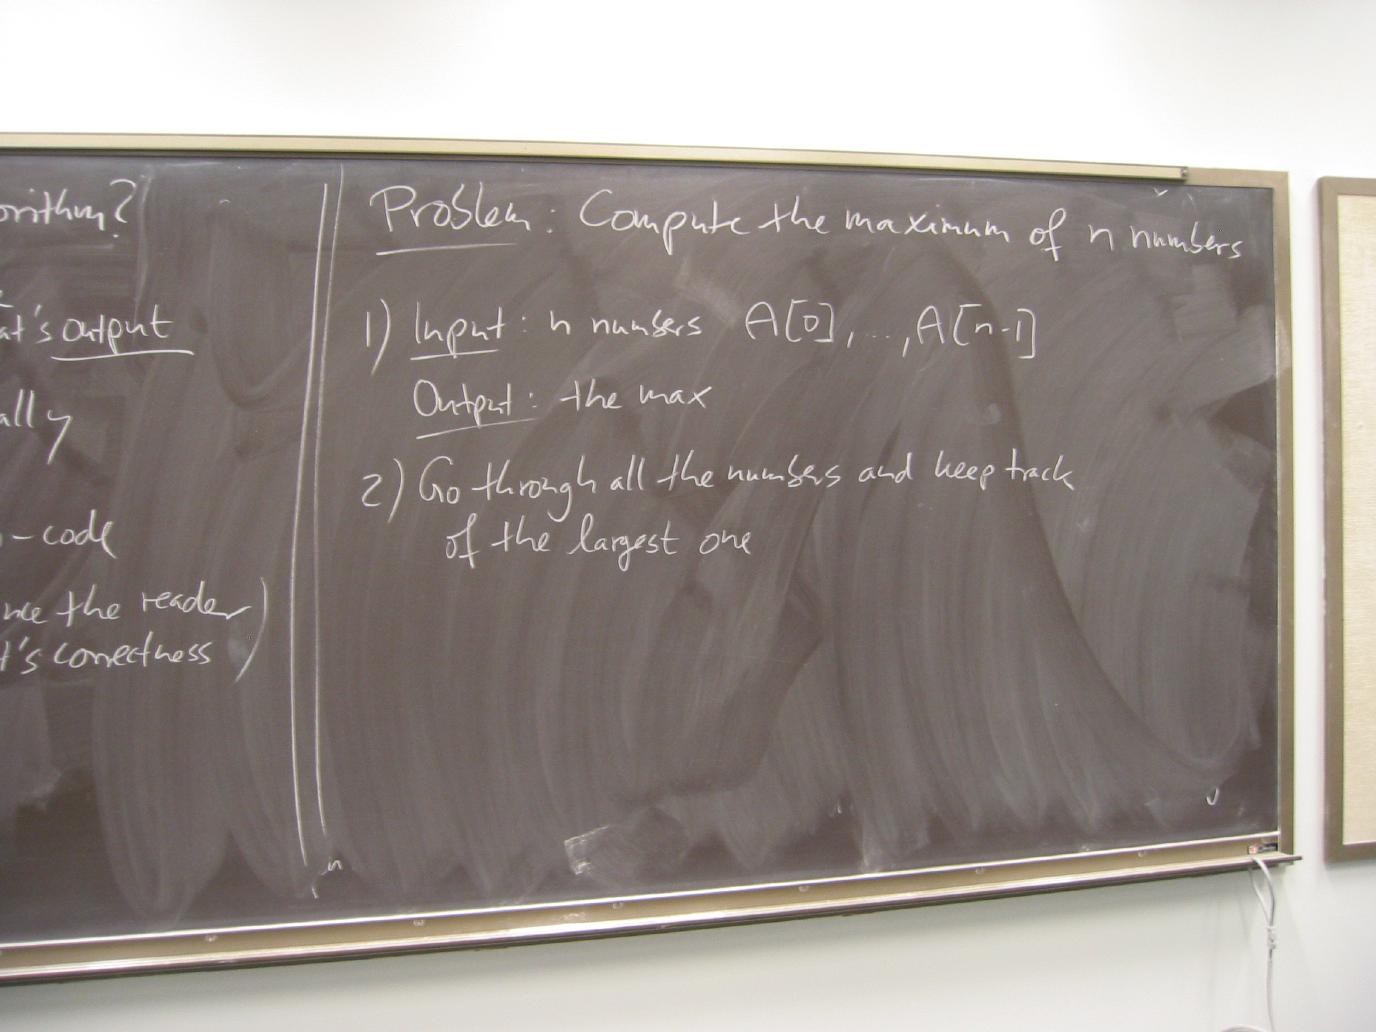 orithm?
at's output
ally
-code
nce the reader)
t's correctness
Problem: Compute the maximum of n numbers
1) Input: n numbers A[0], ..., A[n-1]
Output: the max
2) Go through all the numbers and keep track
of the largest one